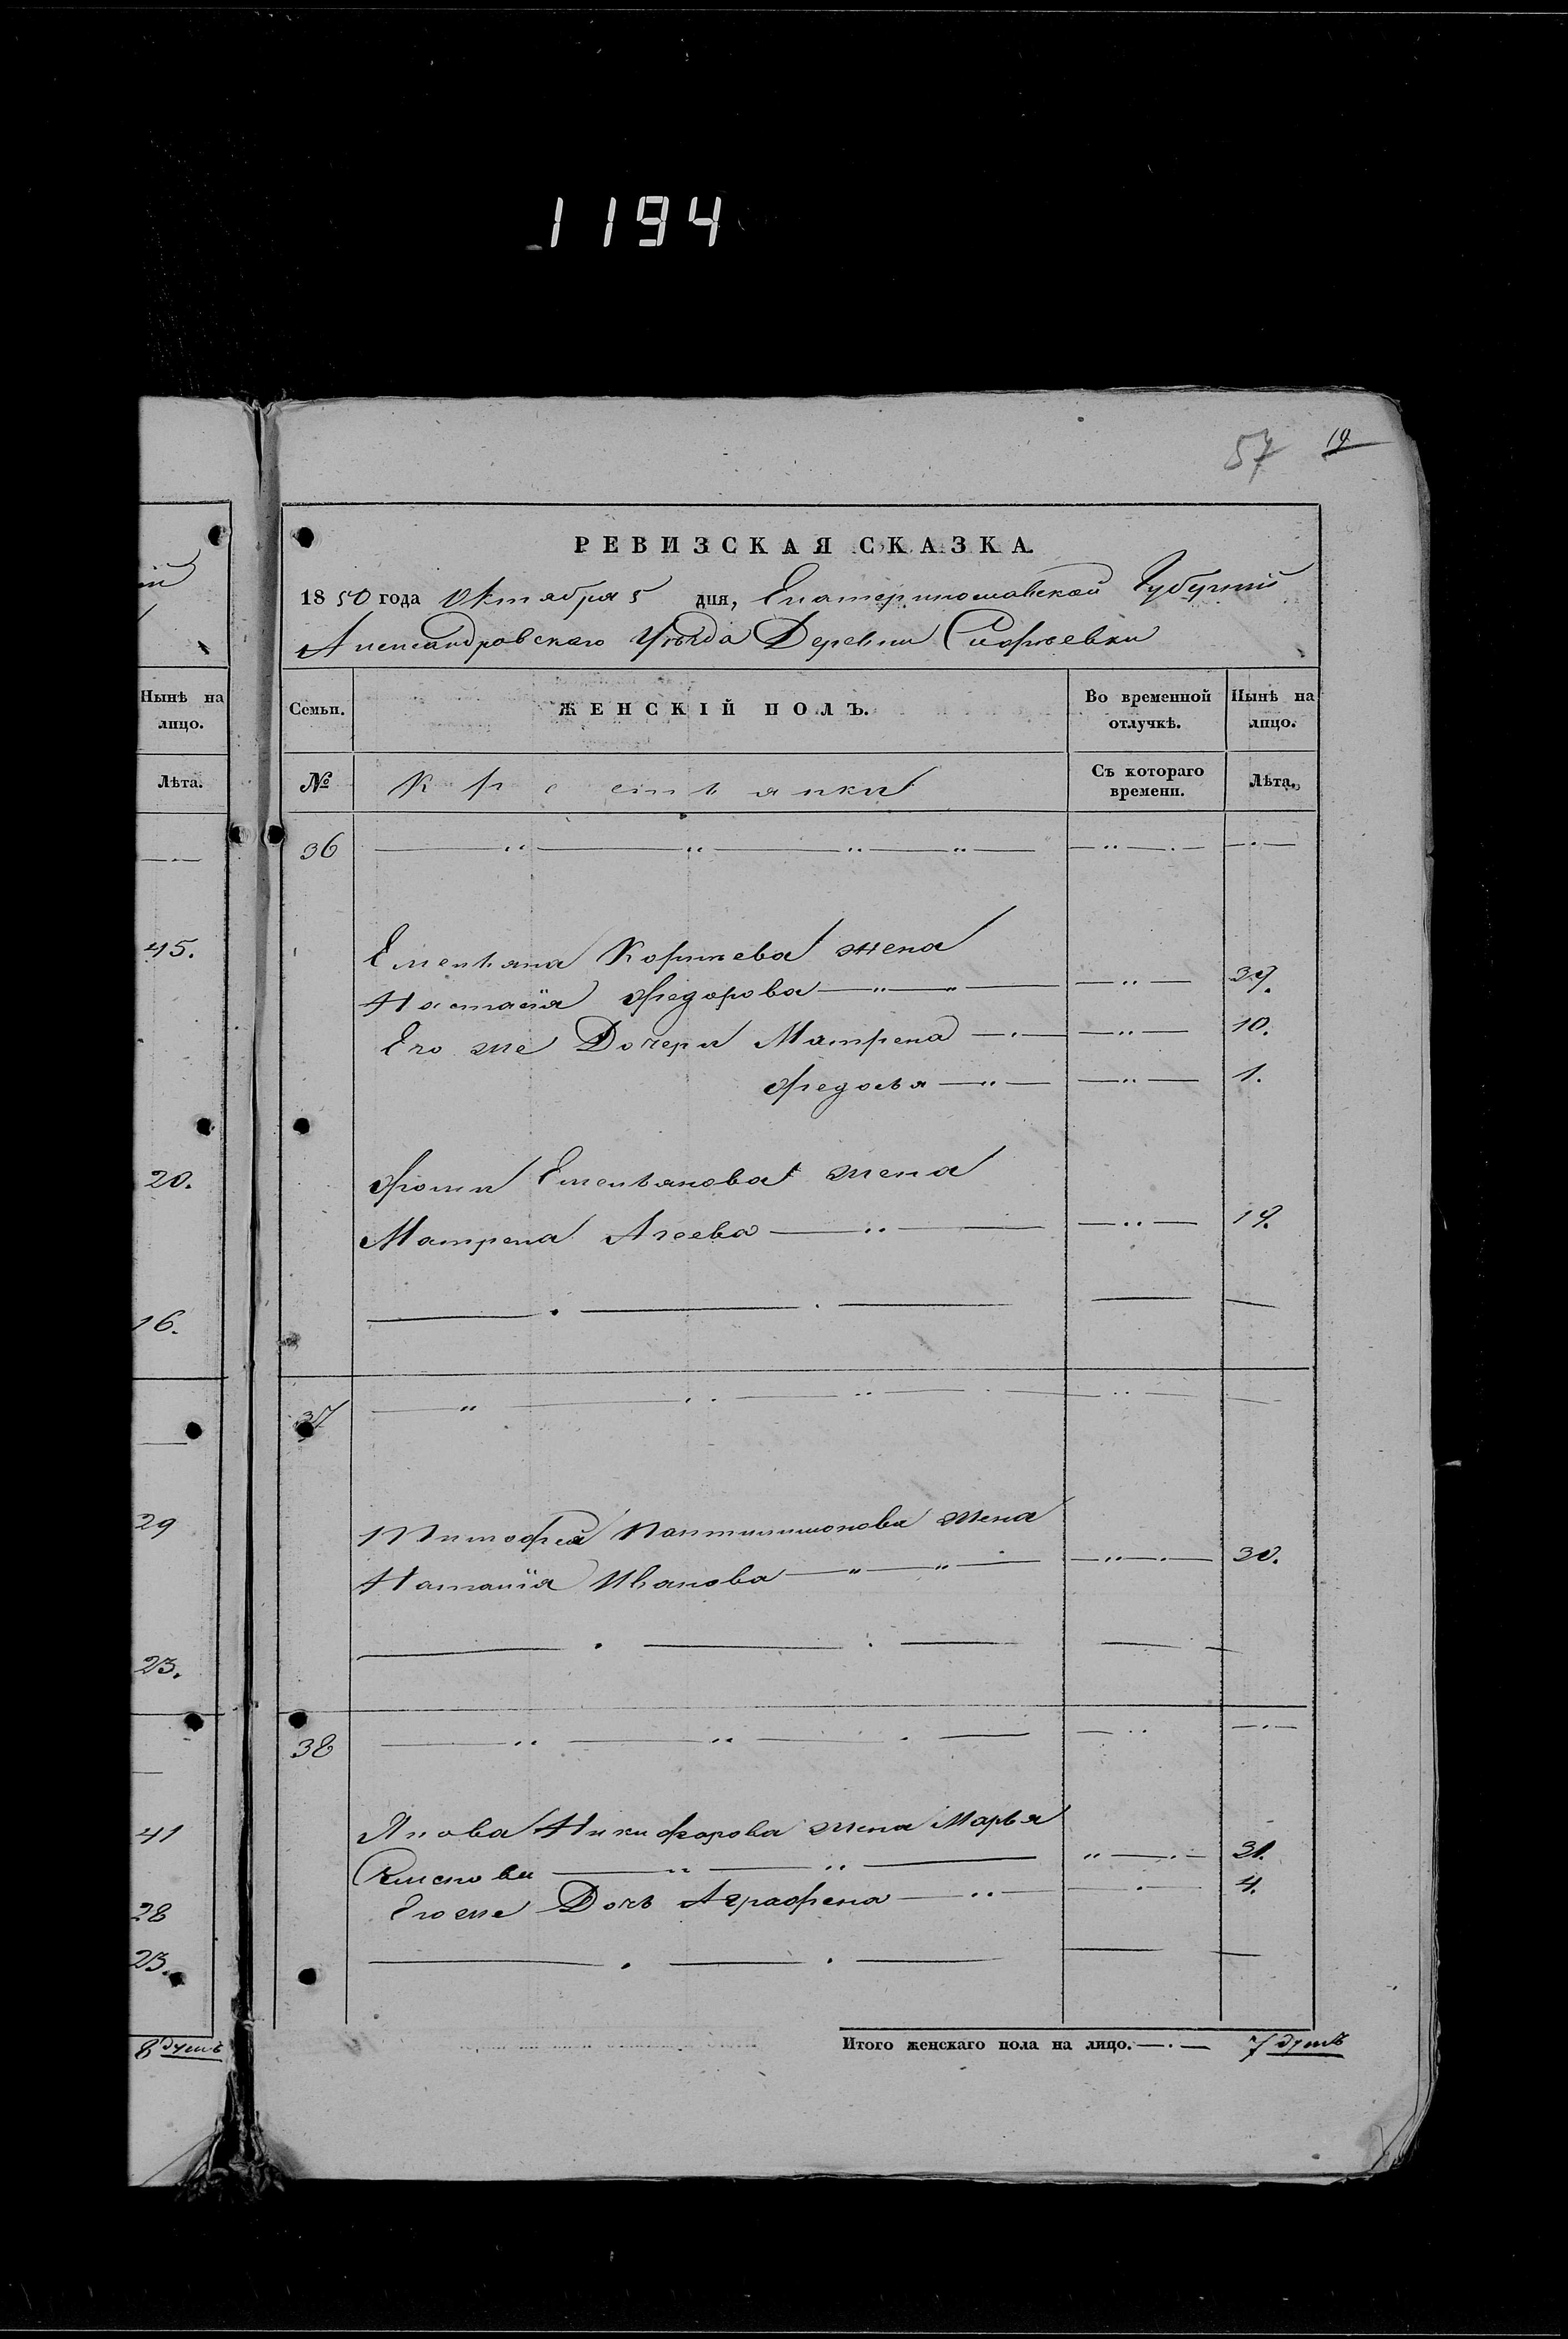 1194
57 19
РЕВИЗСКАЯ СКАЗКА.
1850 года Октября 5 дня, Екатеринославской Губерніи
Александровскаго Уѣзда Деревни
Нынѣ на лицо.
Лѣта.
45.
20.
16.
29
23.
41
28
23.
8 душъ
Семьи. ЖЕНСКІЙ ПОЛЪ. Во временной отлучкѣ. Нынѣ на лицо.
№ Крестьянки Съ котораго времени. Лѣта.
36
Емельяна Корнѣева жена
Настасія Федорова 39.
Его же Дочери Матрена 10.
Федосья 1.
Фомы Емельянова жена
Матрена Агеева 19.
37
Тимофея Пантилимонова жена
Наталія Иванова 30.
38
Якова Никифорова жена Марья
31.
Его же Дочь Аграфена 4.
Итого женскаго пола на лицо. 7 душъ